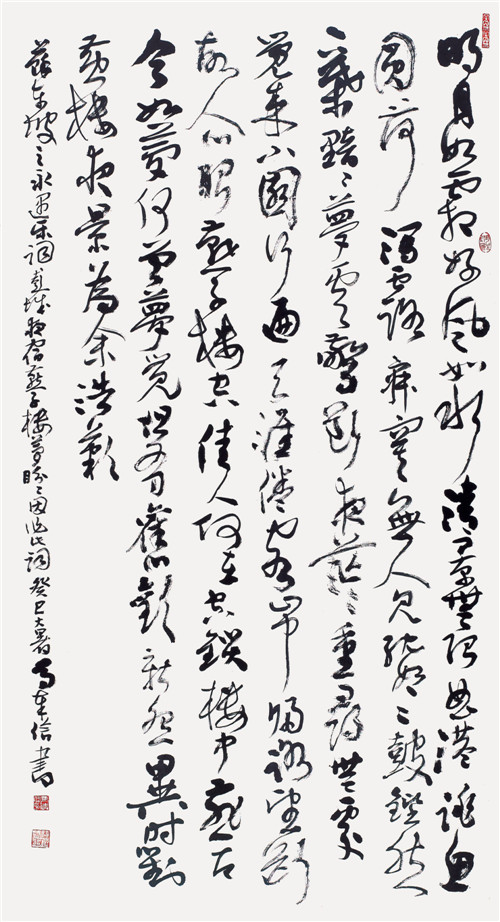 明月如霜好風如水清景無限曲港跳魚
圓荷瀉露寂寞無人見紞如三鼓鏗然
一葉黯々夢雲驚斷夜茫々重尋無處
覺來小園行遍天涯倦客山中歸路望斷
故人心眼燕子樓空佳人何在空鎖樓中燕古
今如夢何曾夢覺但有舊歡新怨異時對
黃樓夜景為余浩歎
蘇東坡之永遇樂詞彭城夜宿燕子樓夢盼々因作此詞癸巳大暑馬奉信書